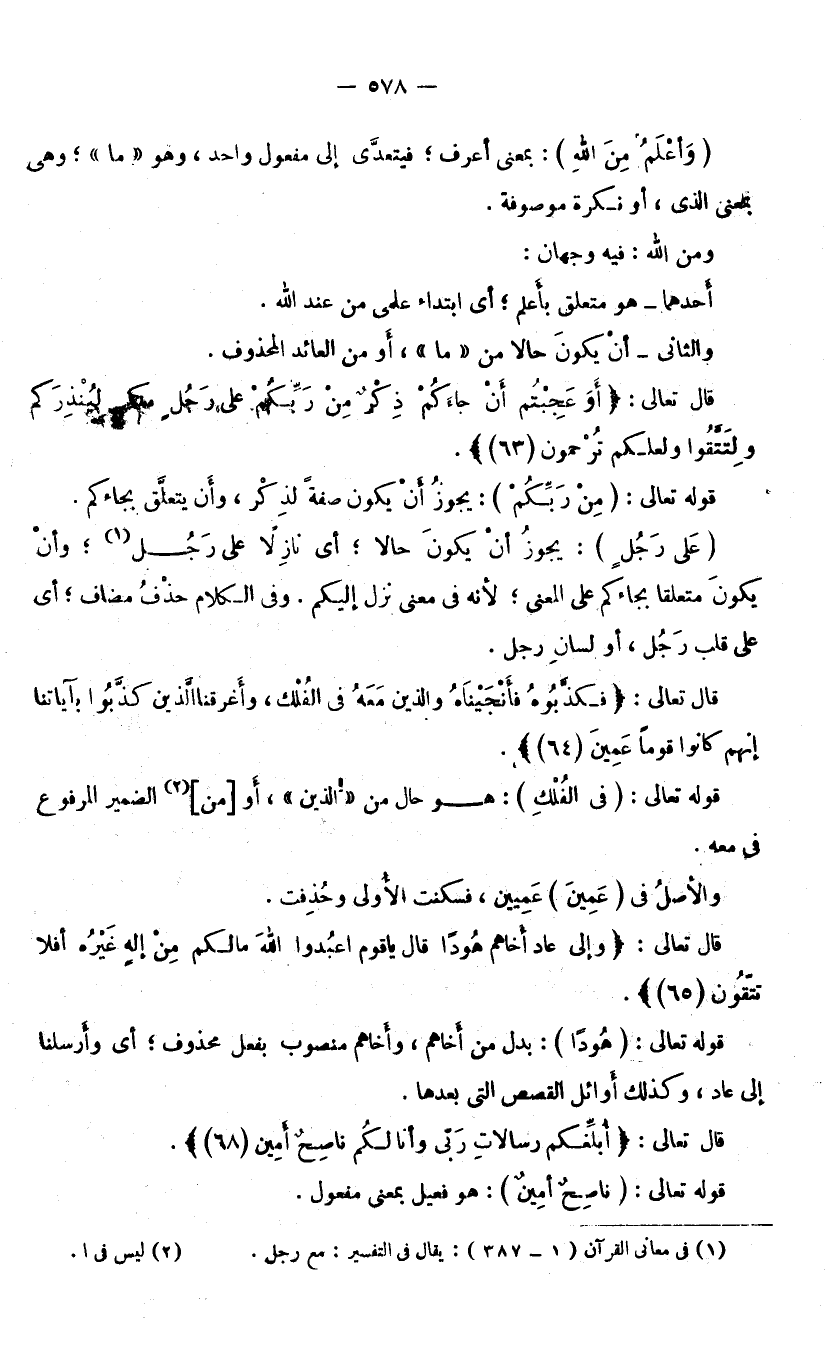 — ٥٧٨ —
( وَأَعْلَمُ مِنَ اللهِ ) : بمعنى أعرف ؛ فيتعدَّى إلى مفعول واحد ، وهو « ما » ؛ وهى
بمعنى الذى ، أو نـكرة موصوفة .
ومن الله : فيه وجهان :
أَحدهما ــ هو متعلق بأَعلم ؛ أى ابتداء علمى من عند الله .
والثانى ــ أنْ يكونَ حالا من « ما » ، أَو من العائد المحذوف .
قال تعالى : ﴿ أَوَ عَجِبْتُم أَنْ جاءَكُمْ ذِكْرٌ مِنْ رَبِّـكُمْ على رَجُلٍ منكم لِيُنْذِرَكم
ولِتَتَّقُوا ولعلـكم تُرْحمون (٦٣) ﴾ .
قوله تعالى : ( مِنْ رَبِّـكُمْ ) : يجوزُ أَنْ يكون صفةً لذِكْر ، وأَن يتعلَّق بجاءكم .
( عَلَى رَجُلٍ ) : يجوزُ أنْ يكونَ حالا ؛ أى نازِلًا على رَجُــل(١) ؛ وأنْ
يكونَ متعلقا بجاءكم على المعنى ؛ لأنه فى معنى نزل إليكم . وفى الـكلام حذْفُ مضاف ؛ أى
على قلب رَجُل ، أو لسانِ رجل .
قال تعالى : ﴿ فـكذَّبُوهُ فأَنْجَيْنَاهُ والذين مَعَهُ فى الفُلْك ، وأَغرقنا الَّذين كذَّبُوا بآياتنا
إنهم كانوا قوماً عَمِينَ (٦٤) ﴾ .
قوله تعالى : ( فى الفُلْكِ ) : هــو حال من « الذين » ، أَو [من](٢) الضمير المرفوع
فى معه .
والأصلُ فى ( عَمِينَ ) عَمِيين ، فسكنت الأُولى وحُذِفت .
قال تعالى : ﴿ وإلى عاد أَخاهم هُودًا قال ياقوم اعبُدوا اللهَ مالـكم مِنْ إلهٍ غَيْرُه أفلا
تتَّقُون (٦٥) ﴾ .
قوله تعالى : ( هُودًا ) : بدل من أَخاهم ، وأَخاهم منصوب بفعل محذوف ؛ أى وأَرسلنا
إلى عاد ، وكذلك أَوائل القصص التى بعدها .
قال تعالى : ﴿ أُبلِّغـكم رسالاتِ رَبِّى وأنا لـكُم ناصِحٌ أَمِين (٦٨) ﴾ .
قوله تعالى : ( ناصِحٌ أمِينٌ ) : هو فعيل بمعنى مفعول .
(١) فى معانى القرآن ( ١ ــ ٣٨٧ ) : يقال فى التفسير : مع رجل . (٢) ليس فى ا .